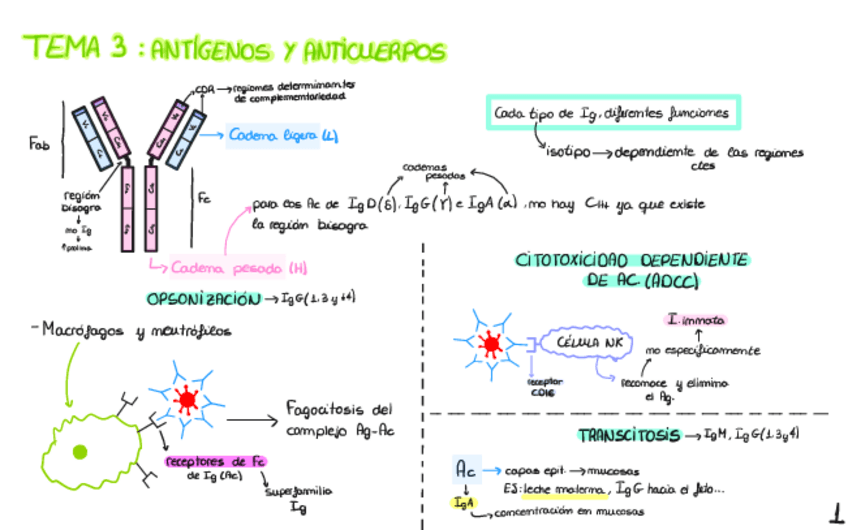 TEMA 3 : ANTÍGENOS Y ANTICUERPOS
CDR → regiones determinantes
de complementariedad
Cadena ligera (L)
Fab
Fc
región
bisagra
no Ig
↑prolina
Cadena pesada (H)
Cada tipo de Ig, diferentes funciones
isotipo → dependiente de las regiones
ctes
cadenas
pesadas
para los Ac de IgD(δ), IgG(γ) e IgA(α), no hay CH4 ya que existe
la región bisagra
OPSONIZACIÓN → IgG(1,3 y 4)
- Macrófagos y neutrófilos
Fagocitosis del
complejo Ag-Ac
receptores de Fc
de Ig (Ac)
superfamilia
Ig
CITOTOXICIDAD DEPENDIENTE
DE AC. (ADCC)
CÉLULA NK
receptor
CD16
reconoce y elimina
el Ag.
no específicamente
I. innata
TRANSCITOSIS → IgM, IgG(1,3 y 4)
Ac → capas epit. → mucosas
EJ: leche materna, IgG hacia el feto...
IgA
concentración en mucosas
1